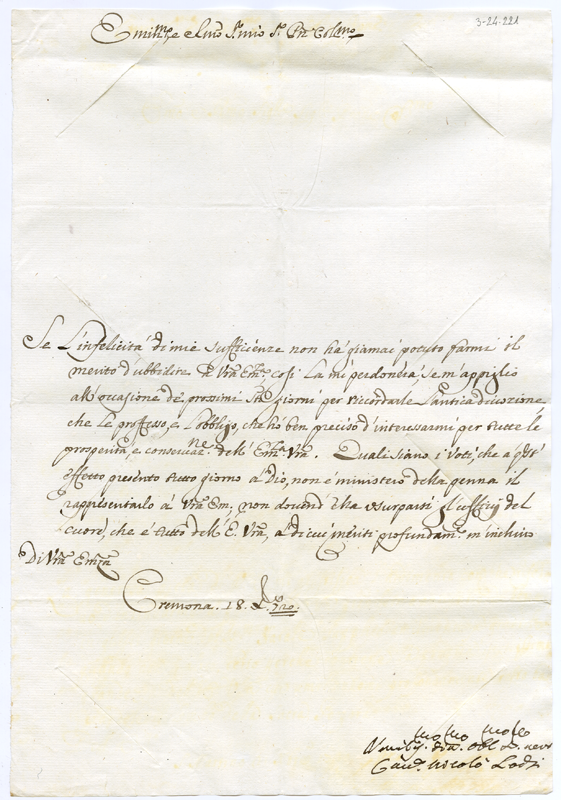 3-24-221
Emin.mo e Rmo Sr. mio Sr. Pne Colmo
Se L'infelicità di mie sufficienze non hà giamai potuto farmi il
merito d'ubbidire à Vra Emza così La mi perdonerà, se m'appiglio
all'occasione de prossimi Sti giorni per ricordarle L'antica divozione
che le professo, e L'obbligo, che hò ben preciso d'interessarmi per tutte le
prosperità, e conservaz.ne dell' Emza Vra. Quali siano i voti, che a qto
effetto presento tutto giorno à Dio, non è ministero della penna il
rappresentarlo à Vra Em; non dovend'ella usurparsi gl'uffizij del
cuore, che è tutto dell' E. Vra, a di cui meriti profundam.e m'inchino
Di Vra Emza
Cremona. 18. Xbre 1720.
Humo
Nicolò Lodi